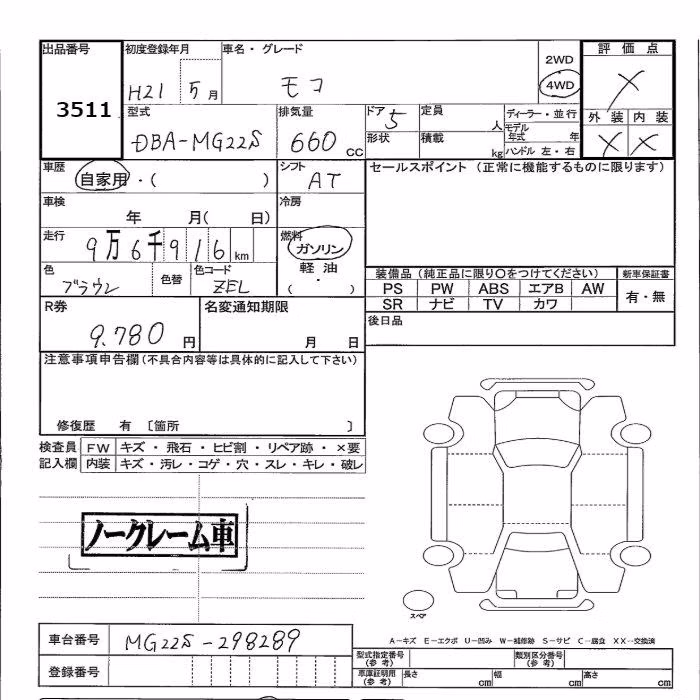 出品番号 3511
初度登録年月 H21 5月
車名・グレード モコ
2WD
4WD
評価点 X
外装 X 内装 X
型式 DBA-MG22S
排気量 660 CC
ドア 5
形状
定員 人
積載 kg
ディーラー・並行
モデル年式 年
ハンドル 左・右
車歴 自家用・( )
シフト AT
セールスポイント (正常に機能するものに限ります)
車検 年 月( 日)
冷房
走行 9万6千916km
燃料 ガソリン
軽油
・
( )
色 ブラウン
色替
色コード ZEL
装備品 (純正品に限り○をつけてください)
新車保証書
PS PW ABS エアB AW
有・無
SR ナビ TV カワ
R券 9.780円
名変通知期限 月 日
後日品
注意事項申告欄(不具合内容等は具体的に記入して下さい)
修復歴 有 〔箇所 〕
検査員記入欄
FW キズ・飛石・ヒビ割・リペア跡・×要
内装 キズ・汚レ・コゲ・穴・スレ・キレ・破レ
ノークレーム車
スペア
A-キズ E-エクボ U-凹み W-補修跡 S-サビ C-腐食 XX-交換済
車台番号 MG22S-298289
登録番号
型式指定番号(参考)
類別区分番号(参考)
車庫証明用(参考) 長さ cm 幅 cm 高さ cm